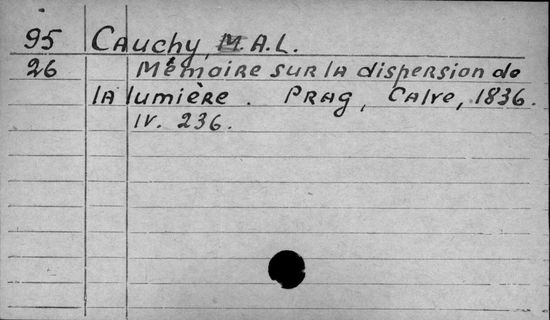 95 Cauchy, M. A. L.
26 Mémoire sur la dispersion de
la lumière. Prag, Calve, 1836.
IV. 236.